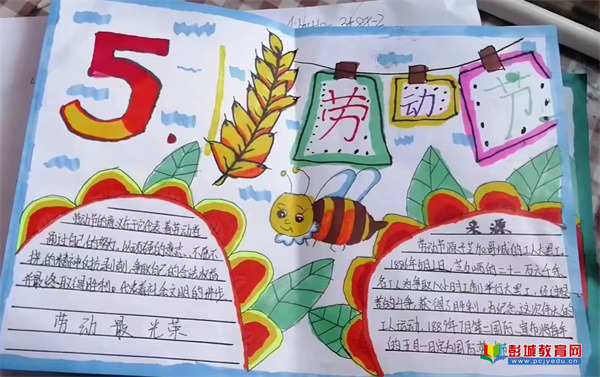 5.1
劳动节
劳动节的意义在于它代表着劳动者
通过自己的努力,以顽强的意志、不屈不
挠的精神
争取了自己的合法权益
代表着社会文明的进步
劳动最光荣
来源
劳动节源于芝加哥城的工人大罢工
1886年5月1日,芝加哥的二十一万六千余
名工人为争取八小时工制举行大罢工,经过艰
苦的斗争,获得了胜利。为纪念这次伟大的
工人运动,1889年7月第二国际宣布将每年
的五月一日定为国际劳动节
彭城教育网
www.pcjyedu.cn